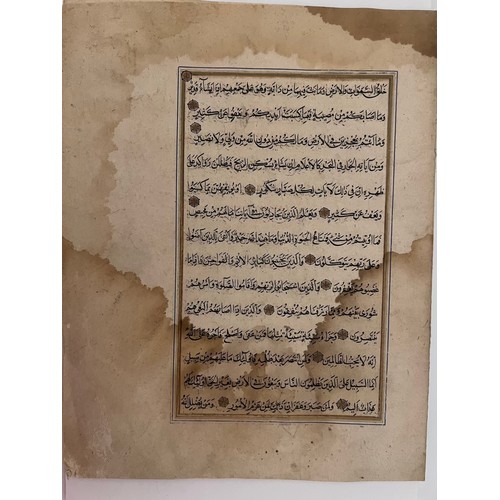 خَلْقُ السَّمٰوَاتِ وَالْاَرْضِ وَمَا بَثَّ فِيهِمَا مِنْ دَابَّةٍ وَهُوَ عَلٰى جَمْعِهِمْ اِذَا يَشَاءُ قَدِيرٌ
وَمَا اَصَابَكُمْ مِنْ مُصِيبَةٍ فَبِمَا كَسَبَتْ اَيْدِيكُمْ وَيَعْفُوا عَنْ كَثِيرٍ
وَمَا اَنْتُمْ بِمُعْجِزِينَ فِي الْاَرْضِ وَمَا لَكُمْ مِنْ دُونِ اللهِ مِنْ وَلِيٍّ وَلَا نَصِيرٍ
وَمِنْ اٰيَاتِهِ الْجَوَارِ فِي الْبَحْرِ كَالْاَعْلَامِ اِنْ يَشَأْ يُسْكِنِ الرِّيحَ فَيَظْلَلْنَ رَوَاكِدَ عَلٰى
ظَهْرِهِ اِنَّ فِي ذٰلِكَ لَاٰيَاتٍ لِكُلِّ صَبَّارٍ شَكُورٍ اَوْ يُوبِقْهُنَّ بِمَا كَسَبُوا
وَيَعْفُ عَنْ كَثِيرٍ وَيَعْلَمَ الَّذِينَ يُجَادِلُونَ فِي اٰيَاتِنَا مَا لَهُمْ مِنْ مَحِيصٍ
فَمَا اُوتِيتُمْ مِنْ شَيْءٍ فَمَتَاعُ الْحَيٰوةِ الدُّنْيَا وَمَا عِنْدَ اللهِ خَيْرٌ وَاَبْقٰى لِلَّذِينَ اٰمَنُوا
وَعَلٰى رَبِّهِمْ يَتَوَكَّلُونَ وَالَّذِينَ يَجْتَنِبُونَ كَبَائِرَ الْاِثْمِ وَالْفَوَاحِشَ وَاِذَا مَا
غَضِبُوا هُمْ يَغْفِرُونَ وَالَّذِينَ اسْتَجَابُوا لِرَبِّهِمْ وَاَقَامُوا الصَّلٰوةَ وَاَمْرُهُمْ
شُورٰى بَيْنَهُمْ وَمِمَّا رَزَقْنَاهُمْ يُنْفِقُونَ وَالَّذِينَ اِذَا اَصَابَهُمُ الْبَغْيُ هُمْ
يَنْتَصِرُونَ وَجَزَاءُ سَيِّئَةٍ سَيِّئَةٌ مِثْلُهَا فَمَنْ عَفَا وَاَصْلَحَ فَاَجْرُهُ عَلَى اللهِ
اِنَّهُ لَا يُحِبُّ الظَّالِمِينَ وَلَمَنِ انْتَصَرَ بَعْدَ ظُلْمِهِ فَاُولٰئِكَ مَا عَلَيْهِمْ مِنْ سَبِيلٍ
اِنَّمَا السَّبِيلُ عَلَى الَّذِينَ يَظْلِمُونَ النَّاسَ وَيَبْغُونَ فِي الْاَرْضِ بِغَيْرِ الْحَقِّ اُولٰئِكَ لَهُمْ
عَذَابٌ اَلِيمٌ وَلَمَنْ صَبَرَ وَغَفَرَ اِنَّ ذٰلِكَ لَمِنْ عَزْمِ الْاُمُورِ وَمَنْ يُضْلِلِ اللهُ